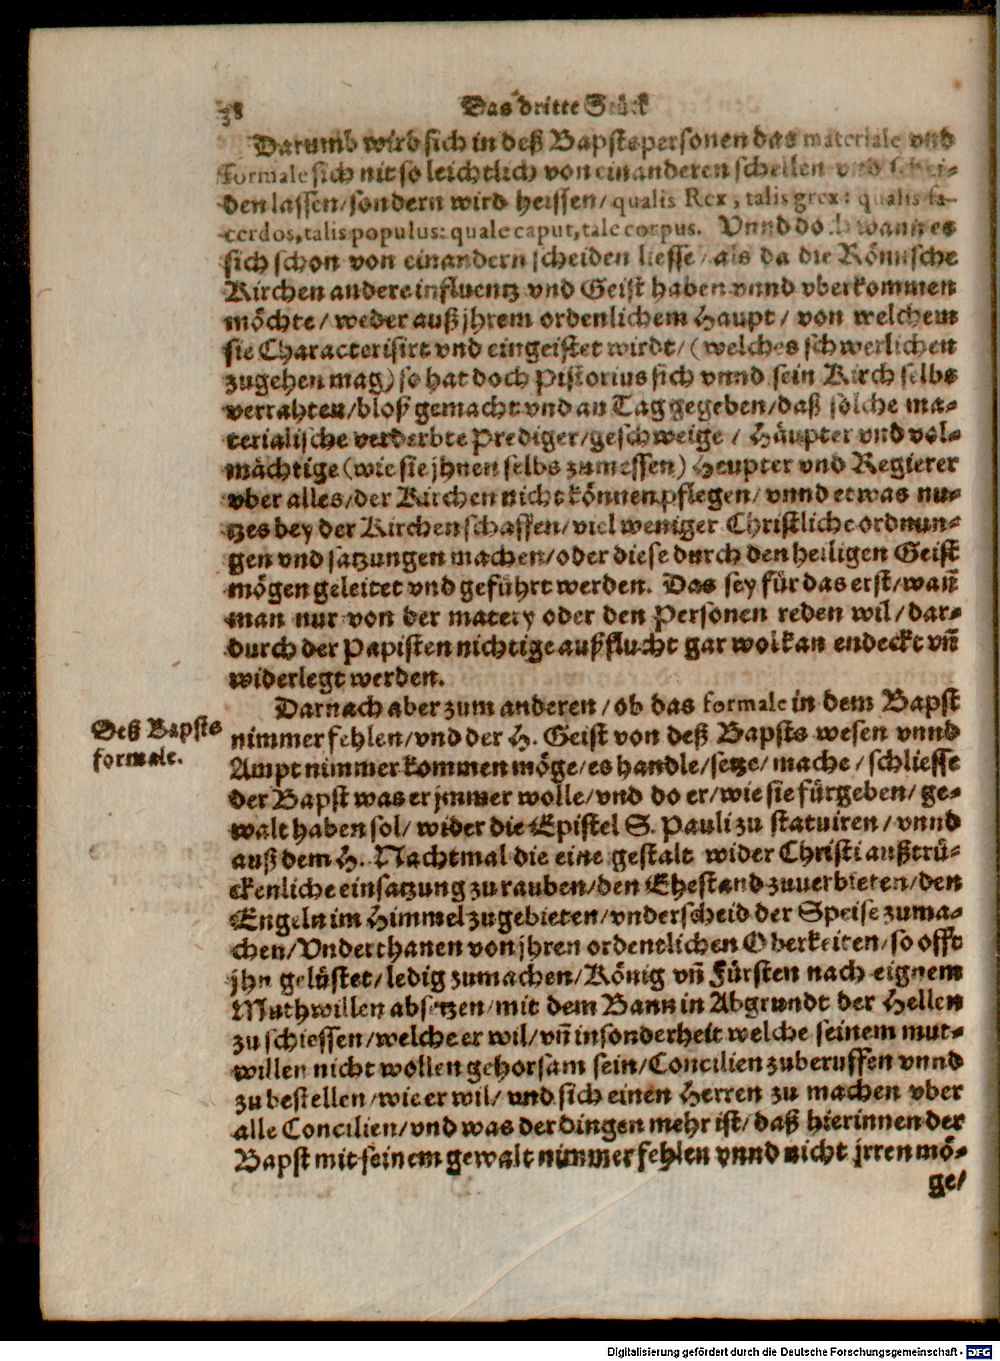 38 Das dritte Stück
Darumb wird sich in deß Bapsts personen das materiale vnd
formale sich nit so leichtlich von einanderen schellen vnd schei-
den lassen/sondern wird heissen/ qualis Rex, talis grex: qualis sa-
cerdos, talis populus: quale caput, tale corpus. Vnnd doch wann es
sich schon von einandern scheiden liesse/ als da die Römische
Kirchen andere influentz vnd Geist haben vnnd vberkommen
möchte/ weder auß jhrem ordenlichem Haupt/ von welchem
sie Characterisirt vnd eingeistet wirdt/ (welches schwerlichen
zugehen mag) so hat doch Pistorius sich vnnd sein Kirch selbs
verrahten/bloß gemacht vnd an Tag gegeben/daß solche ma-
terialische verderbte Prediger/geschweige / Häupter vnd vol-
mächtige (wie sie jhnen selbs zumessen) Heupter vnd Regierer
vber alles/der Kirchen nicht können pflegen/ vnnd etwas nu-
tzes bey der Kirchen schaffen/viel weniger Christliche ordnun-
gen vnd satzungen machen/oder diese durch den heiligen Geist
mögen geleitet vnd geführt werden. Das sey für das erst/wañ
man nur von der matery oder den Personen reden wil/dar-
durch der Papisten nichtige außflucht gar wol kan endeckt vñ
widerlegt werden.
Darnach aber zum anderen/ob das formale in dem Bapst
Deß Bapsts
formale.
nimmer fehlen/vnd der H. Geist von deß Bapsts wesen vnnd
Ampt nimmer kommen möge/es handle/setze/mache/schliesse
der Bapst was er jmmer wolle/vnd do er/wie sie fürgeben/ ge-
walt haben sol/wider die Epistel S. Pauli zu statuiren/vnnd
auß dem H. Nachtmal die eine gestalt wider Christi außtrü-
ckenliche einsatzung zu rauben/den Ehestand zuuerbieten/den
Engeln im Himmel zugebieten/vnderscheid der Speise zuma-
chen/Vnderthanen von jhren ordentlichen Oberkeiten/so offt
jhn gelüstet/ledig zumachen/König vñ Fürsten nach eignem
Muthwillen absetzen/mit dem Bann in Abgrundt der Hellen
zu schiessen/welche er wil/vñ insonderheit welche seinem mut-
willen nicht wollen gehorsam sein/Concilien zuberuffen vnnd
zu bestellen/wie er wil/ vnd sich einen Herren zu machen vber
alle Concilien/vnd was der dingen mehr ist/daß hierinnen der
Bapst mit seinem gewalt nimmer fehlen vnnd nicht jrren mö-
ge/
Digitalisierung gefördert durch die Deutsche Forschungsgemeinschaft - DFG